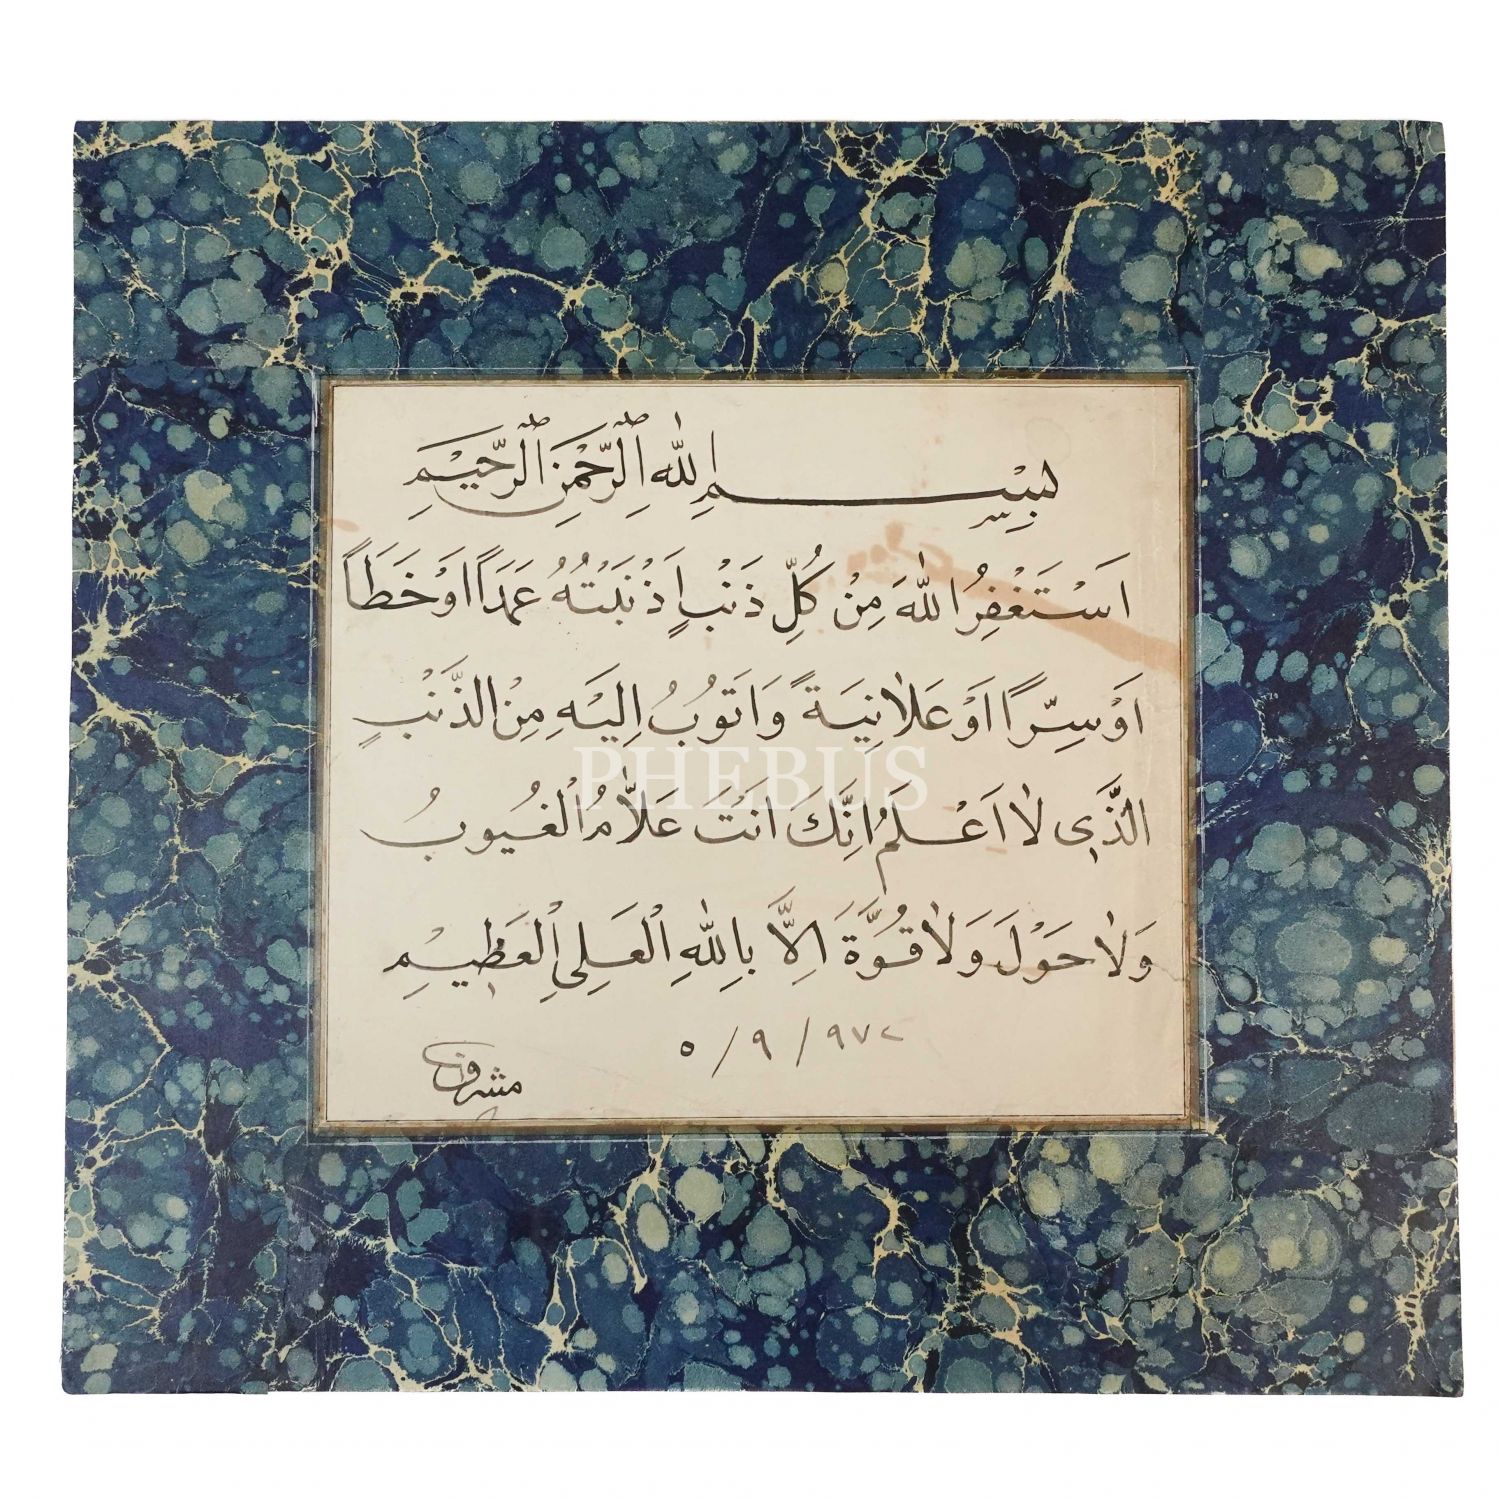 بِسْمِ اللّٰهِ الرَّحْمٰنِ الرَّحِيْمِ
اَسْتَغْفِرُ اللّٰهَ مِنْ كُلِّ ذَنْبٍ اَذْنَبْتُهُ عَمَدًا اَوْ خَطَأً
اَوْ سِرًّا اَوْ عَلَانِيَةً وَاَتُوبُ اِلَيْهِ مِنَ الذَّنْبِ
PHEBUS
الَّذِى لَا اَعْلَمُ اِنَّكَ اَنْتَ عَلَّامُ الْغُيُوبُ
وَلَا حَوْلَ وَلَا قُوَّةَ اِلَّا بِاللّٰهِ الْعَلِىِ الْعَظِيْمِ
٥/٩/٩٧٢